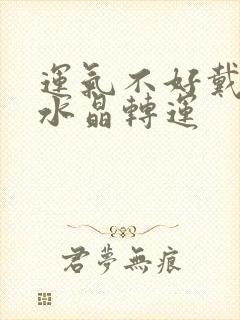 運氣不好戴
水晶轉運
君夢無痕